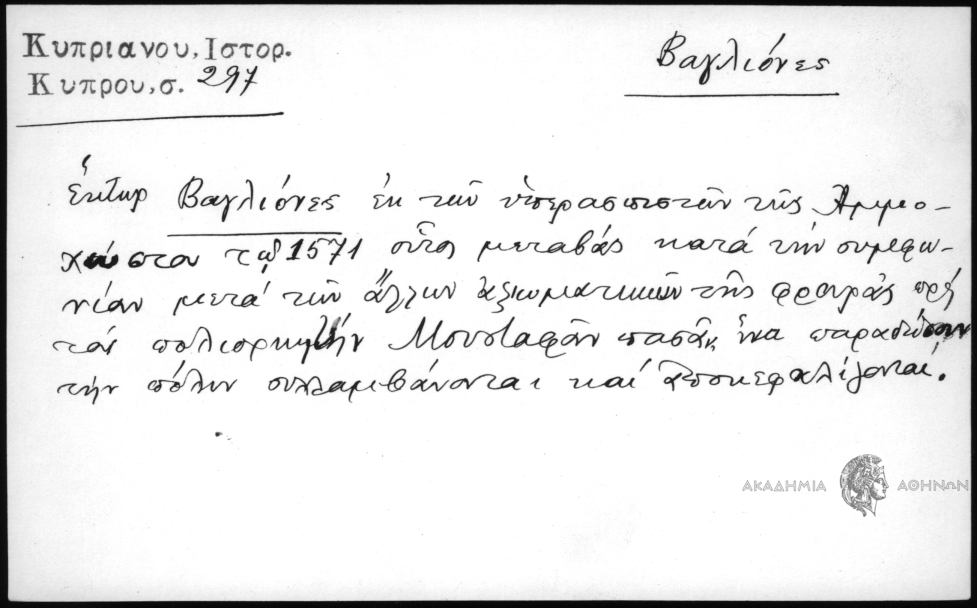 Κυπριανου, Ιστορ.
Κυπρου, σ. 297
Βαγλιόνες
Έκτωρ Βαγλιόνες ἐκ τῶν ὑπερασπιστῶν τῆς Ἀμμο-
χώστου τῷ 1571 οὗτος μεταβάς κατά τήν συμφω-
νίαν μετά τῶν ἄλλων ἀξιωματικῶν τῆς φρουρᾶς πρός
τόν πολιορκητήν Μουσταφᾶν πασᾶν ἵνα παραδώσουν
τήν πόλιν συλλαμβάνονται καί ἀποκεφαλίζονται.
ΑΚΑΔΗΜΙΑ ΑΘΗΝΩΝ